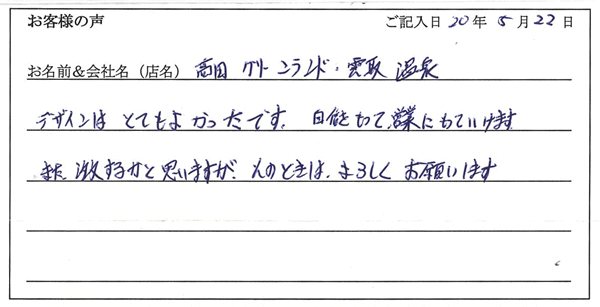 お客様の声 ご記入日 20年 5月 22日
お名前&会社名（店名） 高田 グリーンランド・雲取温泉
デザインは とてもよかったです。 自信もって、営業にもっていけます
また、 するかと思いますが、そのときは、よろしく お願いします